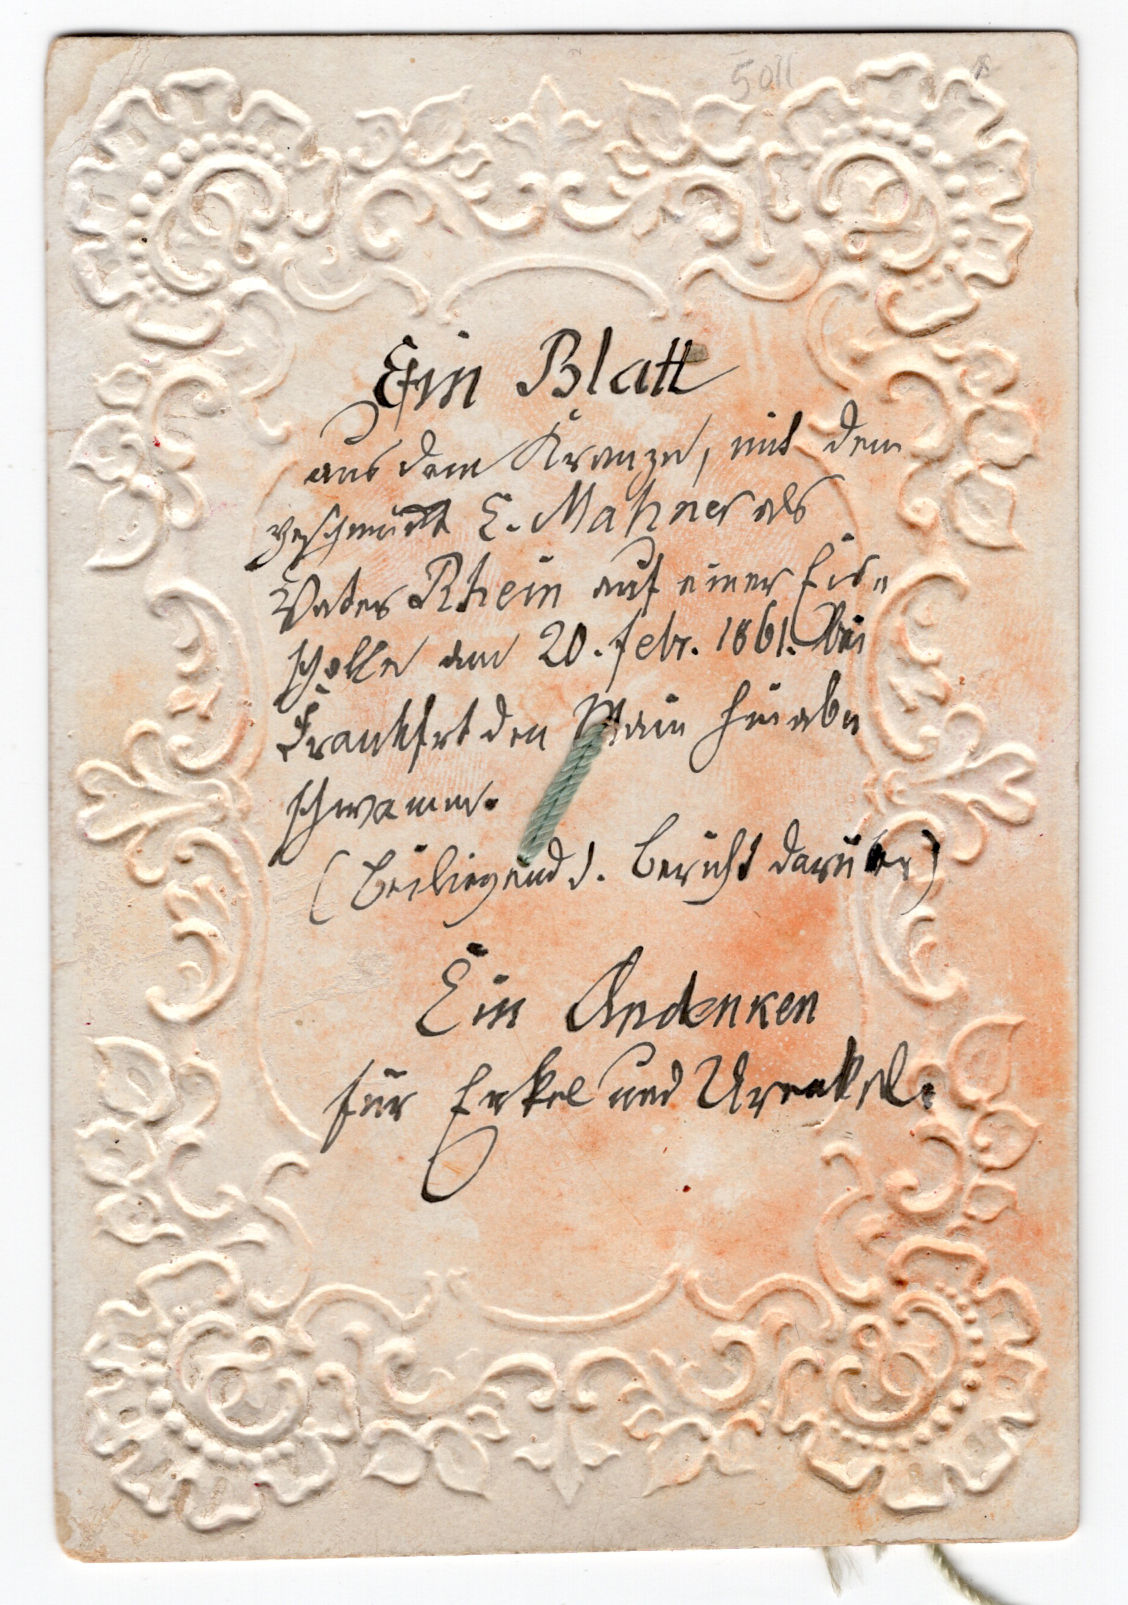 5011
Ein Blatt
aus dem Kranze, mit dem
geschmückt E. Mahner als
Vater Rhein auf einer Eis„
scholle am 20. Febr. 1861. bei
Frankfrt den Main hinab„
schwamm.
(Beiliegend d. Bericht darüber)
Ein Andenken
für Enkel und Urenkel.